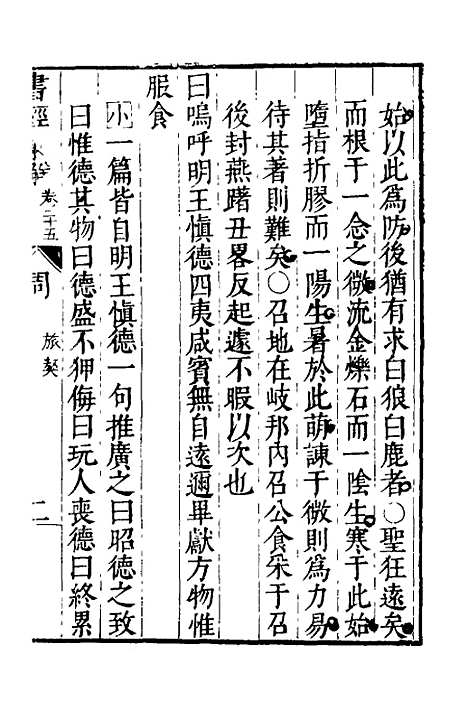 始以此爲防後猶有求白狼白鹿者○聖狂遠矣
而根于一念之微流金爍石而一陰生寒于此始
墮指折膠而一陽生暑於此萌諫于微則爲力易
待其著則難矣○召地在岐邦內召公食采于召
後封燕躇丑畧反起遽不暇以次也
曰嗚呼明王愼德四夷咸賓無自遠邇畢獻方物惟
服食
小一篇皆自明王愼德一句推廣之曰昭德之致
曰惟德其物曰德盛不狎侮曰玩人喪德曰終累
書經 卷三十五 周 旅獒 二